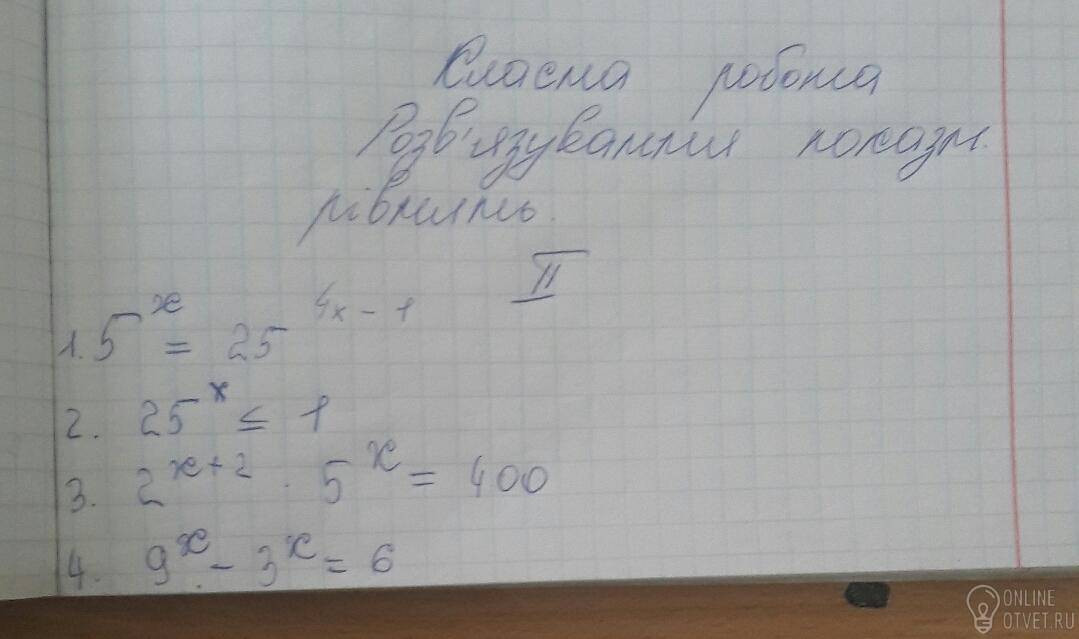 Класна робота
Розв'язування показн.
рівнянь.
II
1. 5^x = 25^{4x-1}
2. 25^x ≤ 1
3. 2^{x+2} · 5^x = 400
4. 9^x - 3^x = 6
ONLINE
OTVET.RU